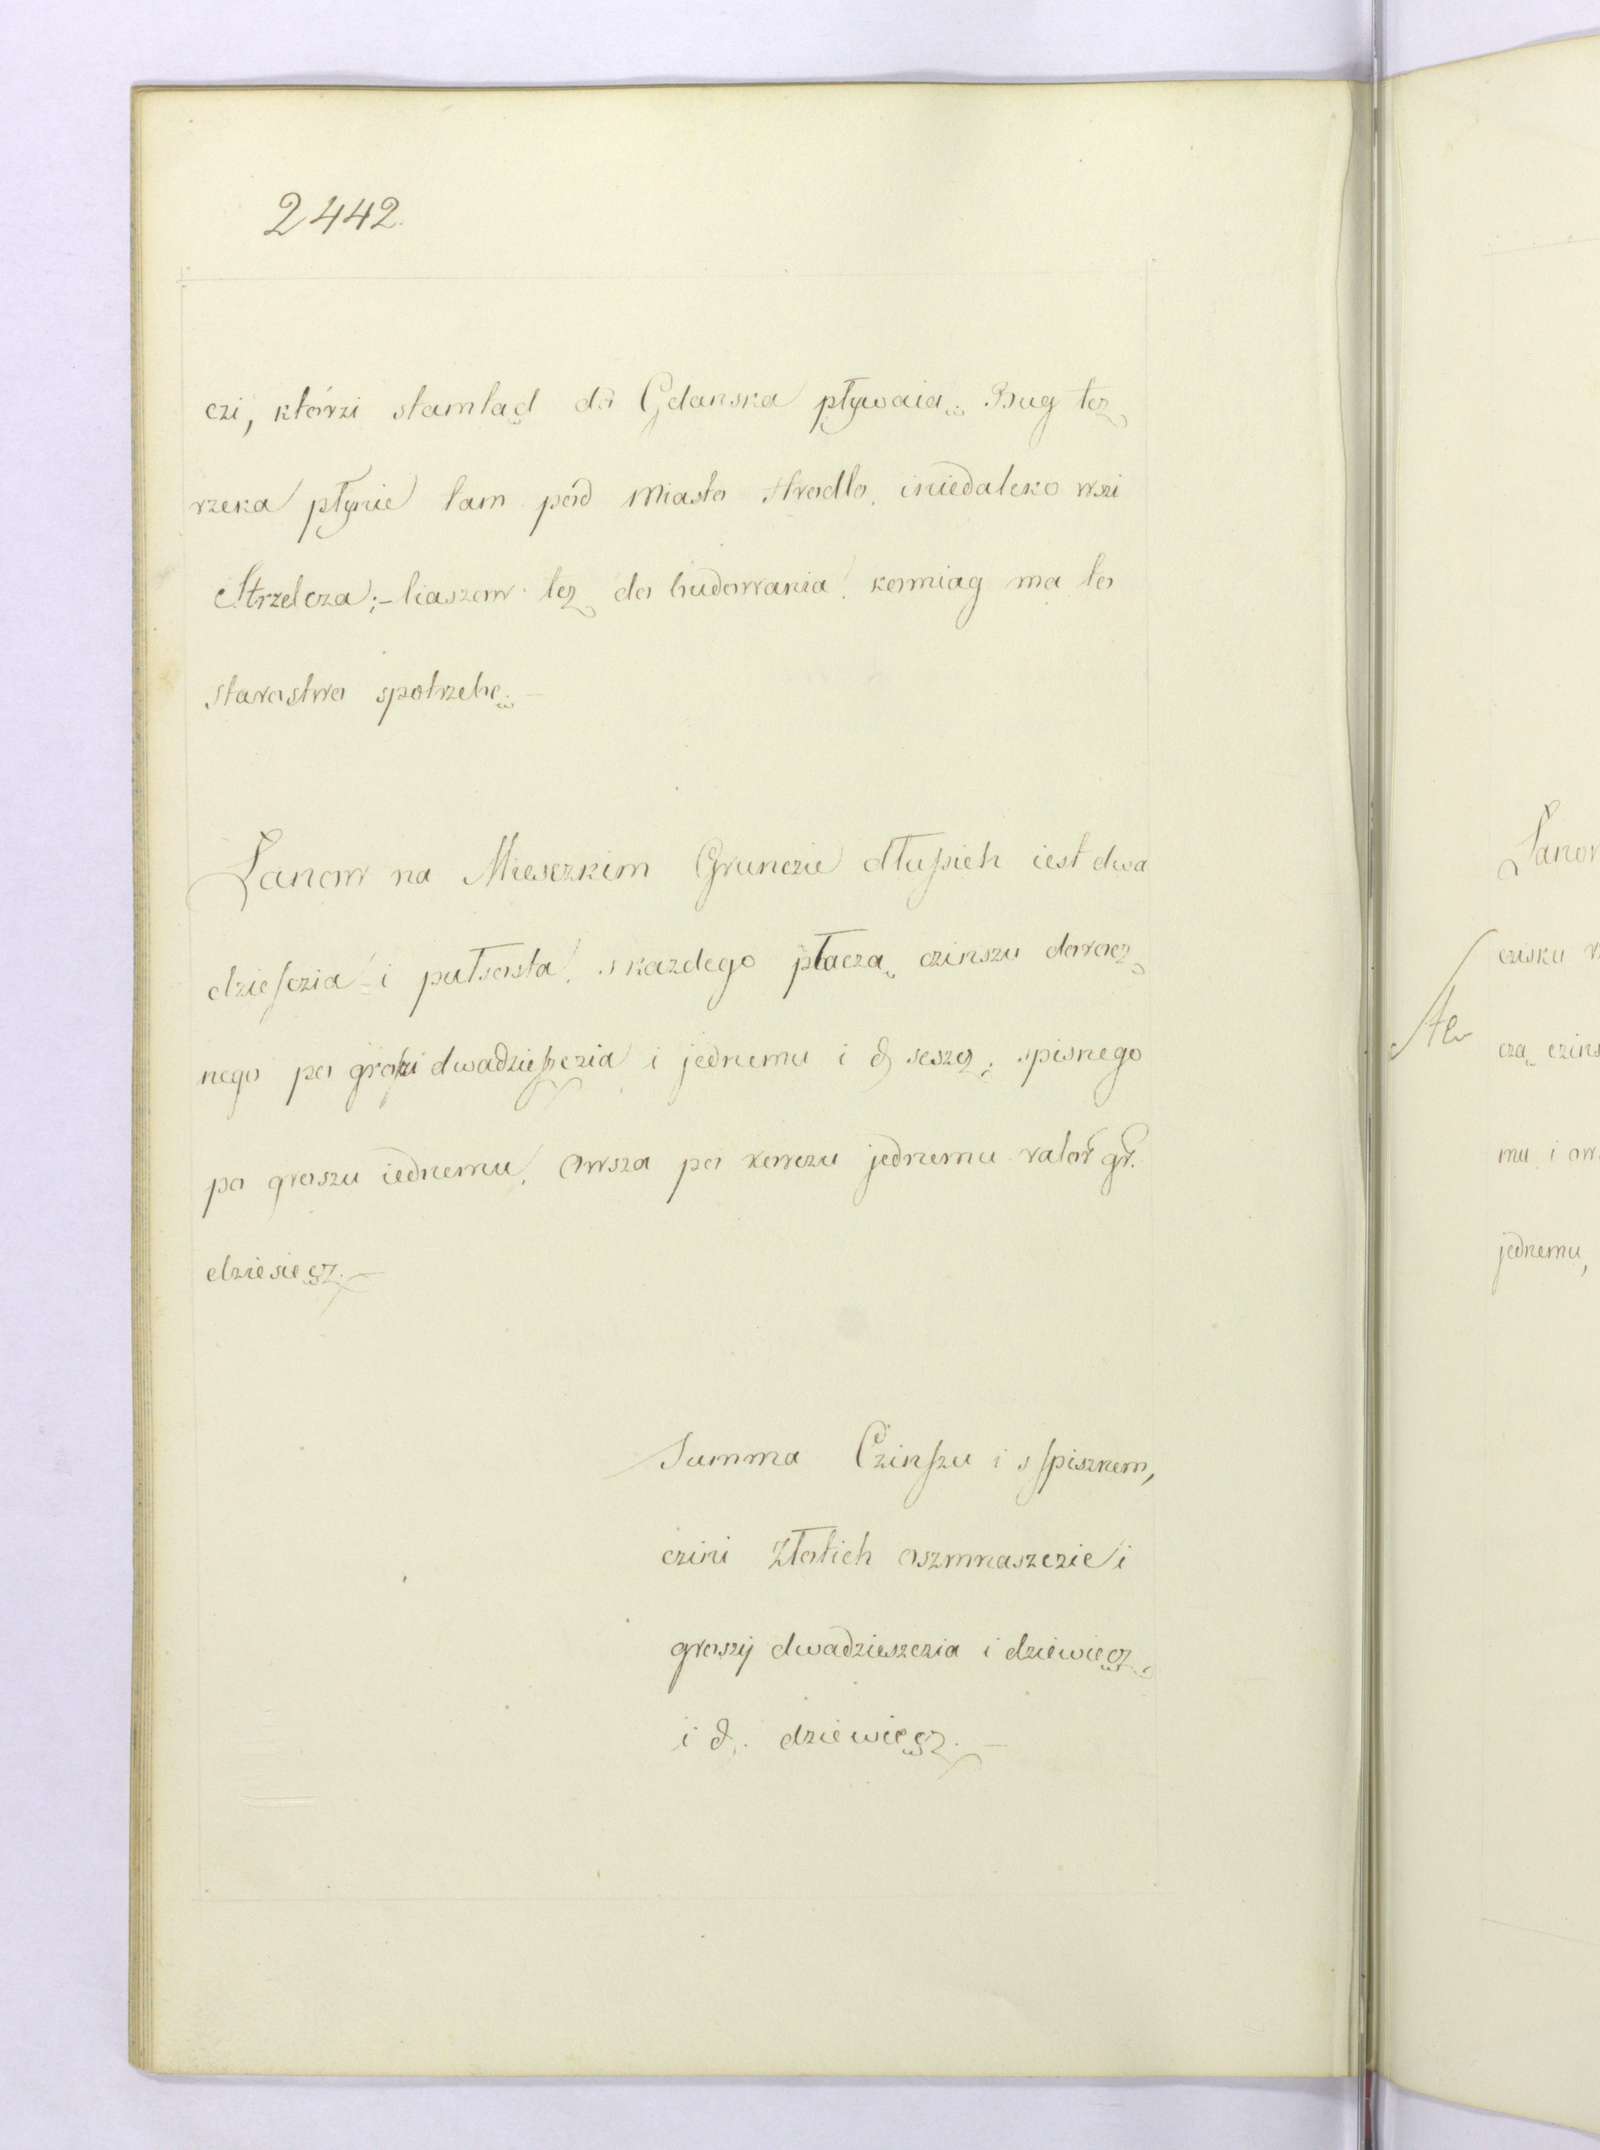 2442.
czi, którzi stamtąd do Gdanska pływaią. Bug też
rzeka płynie tam pod Miasto Hrodło, i niedaleko wszi
Strzelcza;- liaszow też do budowania komiag ma to
starostwo spotrzebę.-
Łanow na Miesczkim Grunczie dłuſsich iest dwa
dzieſczia i pułsosta, s kazdego płaczą czinszu dorocz
nego po groszi dwadzieſzczia i jednemu i ₰ seszcz, spisnego
po groszu iednemu, Owsza po korczu jednemu valor gr.
dziesięcz.-
Summa Czinſzu i s ſpisznem,
czini Złotich oszmnaszczie i
groszÿ dwadzieszczia i dziewięcz
i ₰. dziewięcz.-
Łanow
czisku
czą czins
mu i ow
jednemu,